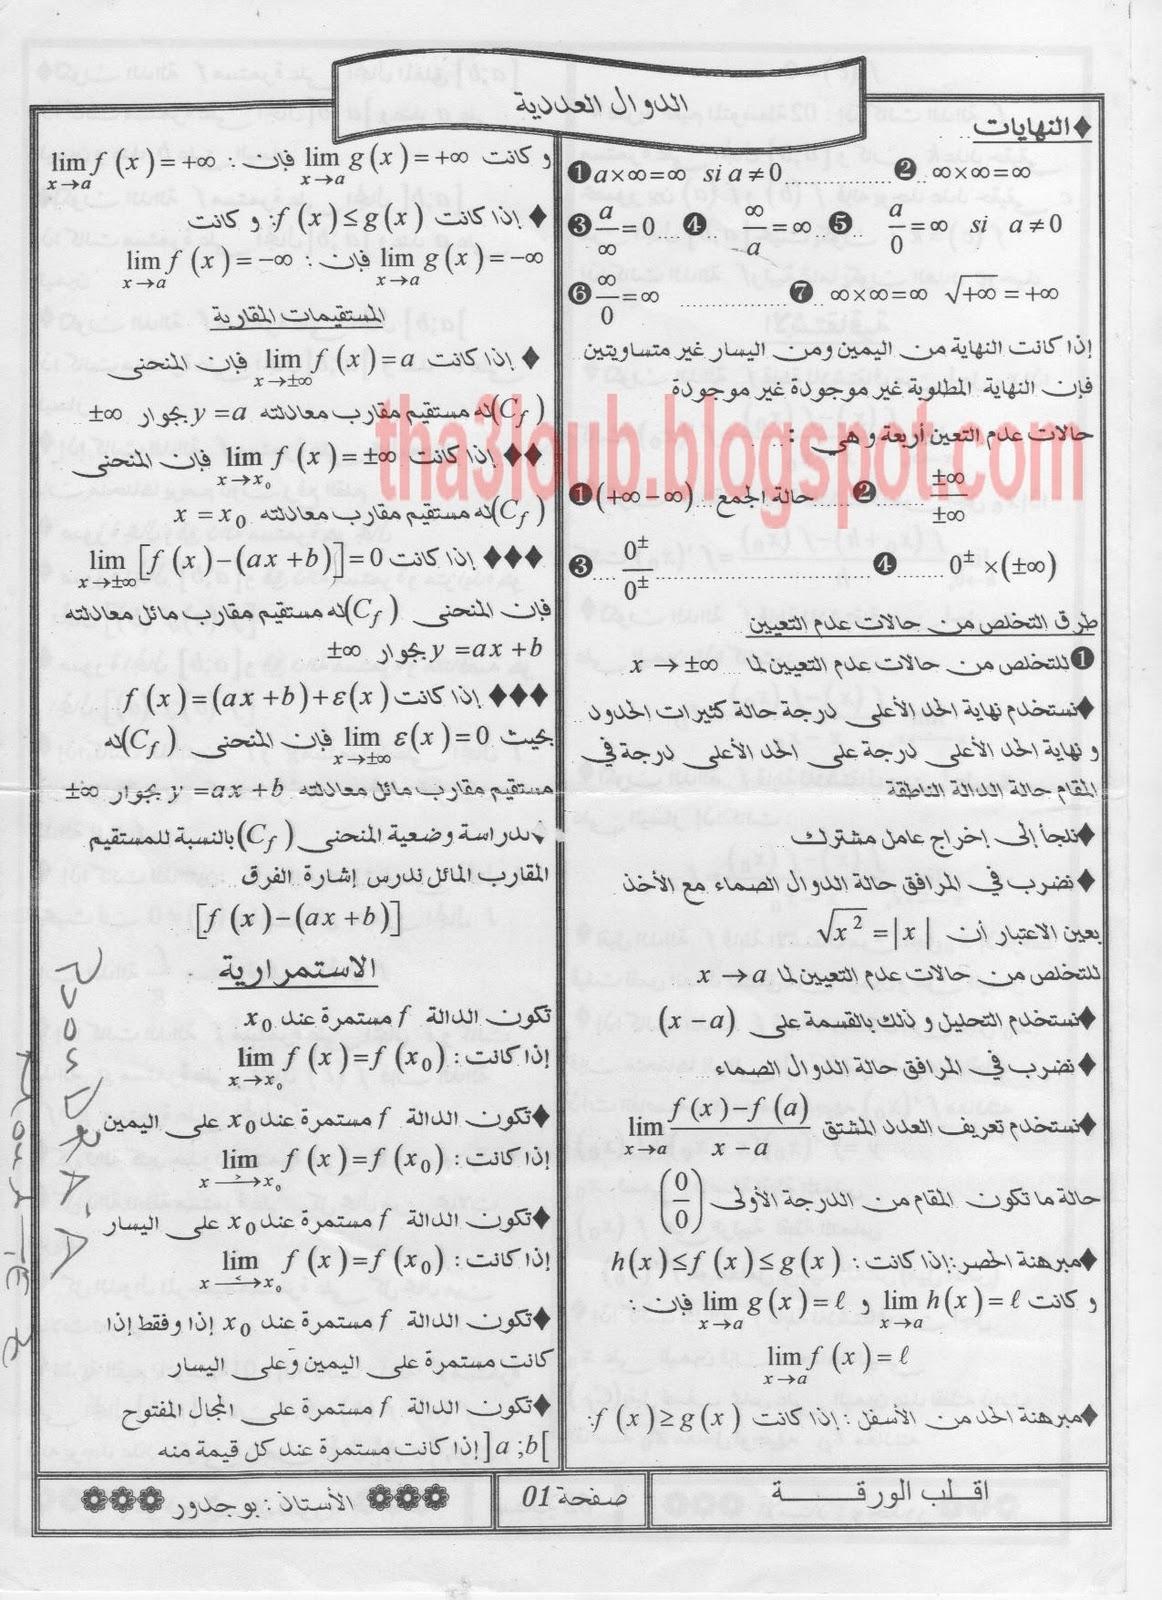 الدوال العددية
♦النهايات
❶ a×∞=∞ si a≠0 ............... ❷ ∞×∞=∞
❸ a/∞=0 .... ❹ ∞/a=∞ ❺ a/0=∞ si a≠0
❻ ∞/0=∞ ............... ❼ ∞×∞=∞ √+∞=+∞
إذا كانت النهاية من اليمين ومن اليسار غير متساويتين
فإن النهاية المطلوبة غير موجودة غير موجودة
حالات عدم التعين أربعة و هي :
❶(+∞−∞) حالة الجمع ..... ❷ ±∞/±∞
❸.... 0±/0± ............... ❹ ....... 0±×(±∞)
طرق التخلص من حالات عدم التعيين
❶للتخلص من حالات عدم التعيين لما x→±∞
♦نستخدم نهاية الحد الأعلى درجة حالة كثيرات الحدود
و نهاية الحد الأعلى درجة على الحد الأعلى درجة في
المقام حالة الدالة الناطقة
♦نلجأ إلى إخراج عامل مشترك
♦نضرب في المرافق حالة الدوال الصماء مع الأخذ
بعين الاعتبار أن √x² = |x|
للتخلص من حالات عدم التعيين لما x→a
♦نستخدم التحليل و ذلك بالقسمة على (x−a)
♦نضرب في المرافق حالة الدوال الصماء
♦نستخدم تعريف العدد المشتق lim x→a f(x)−f(a)/x−a
حالة ما تكون المقام من الدرجة الأولى (0/0)
♦مبرهنة الحصر:إذا كانت : h(x)≤f(x)≤g(x)
و كانت lim x→a h(x)=ℓ و lim x→a g(x)=ℓ فإن :
lim x→a f(x)=ℓ
♦مبرهنة الحد من الأسفل : إذا كانت f(x)≥g(x):
و كانت lim x→a g(x)=+∞ فإن : lim x→a f(x)=+∞
♦ إذا كانت f(x)≤g(x): و كانت
lim x→a g(x)=−∞ فإن : lim x→a f(x)=−∞
المستقيمات المقاربة
♦ إذا كانت lim x→±∞ f(x)=a فإن المنحنى
(Cf)له مستقيم مقارب معادلته y=a بجوار ±∞
♦♦ إذا كانت lim x→x₀ f(x)=±∞ فإن المنحنى
(Cf)له مستقيم مقارب معادلته x=x₀
♦♦♦ إذا كانت lim x→±∞ [f(x)−(ax+b)]=0
فإن المنحنى (Cf)له مستقيم مقارب مائل معادلته
y=ax+b بجوار ±∞
♦♦♦ إذا كانت f(x)=(ax+b)+ε(x)
بحيث lim x→±∞ ε(x)=0 فإن المنحنى (Cf)له
مستقيم مقارب مائل معادلته y=ax+b بجوار ±∞
♦لدراسة وضعية المنحنى (Cf)بالنسبة للمستقيم
المقارب المائل ندرس إشارة الفرق
[f(x)−(ax+b)]
الاستمرارية
تكون الدالة f مستمرة عند x₀
إذا كانت : lim x→x₀ f(x)=f(x₀)
♦تكون الدالة f مستمرة عند x₀ على اليمين
إذا كانت : lim x→x₀ f(x)=f(x₀)
♦تكون الدالة f مستمرة عند x₀ على اليسار
إذا كانت : lim x→x₀ f(x)=f(x₀)
♦تكون الدالة f مستمرة عند x₀ إذا وفقط إذا
كانت مستمرة على اليمين وعلى اليسار
♦تكون الدالة f مستمرة على المجال المفتوح
]a;b[ إذا كانت مستمرة عند كل قيمة منه
اقـلب الورقــة
صفحة 01
الأستاذ : بوجدور
tha3loub.blogspot.com